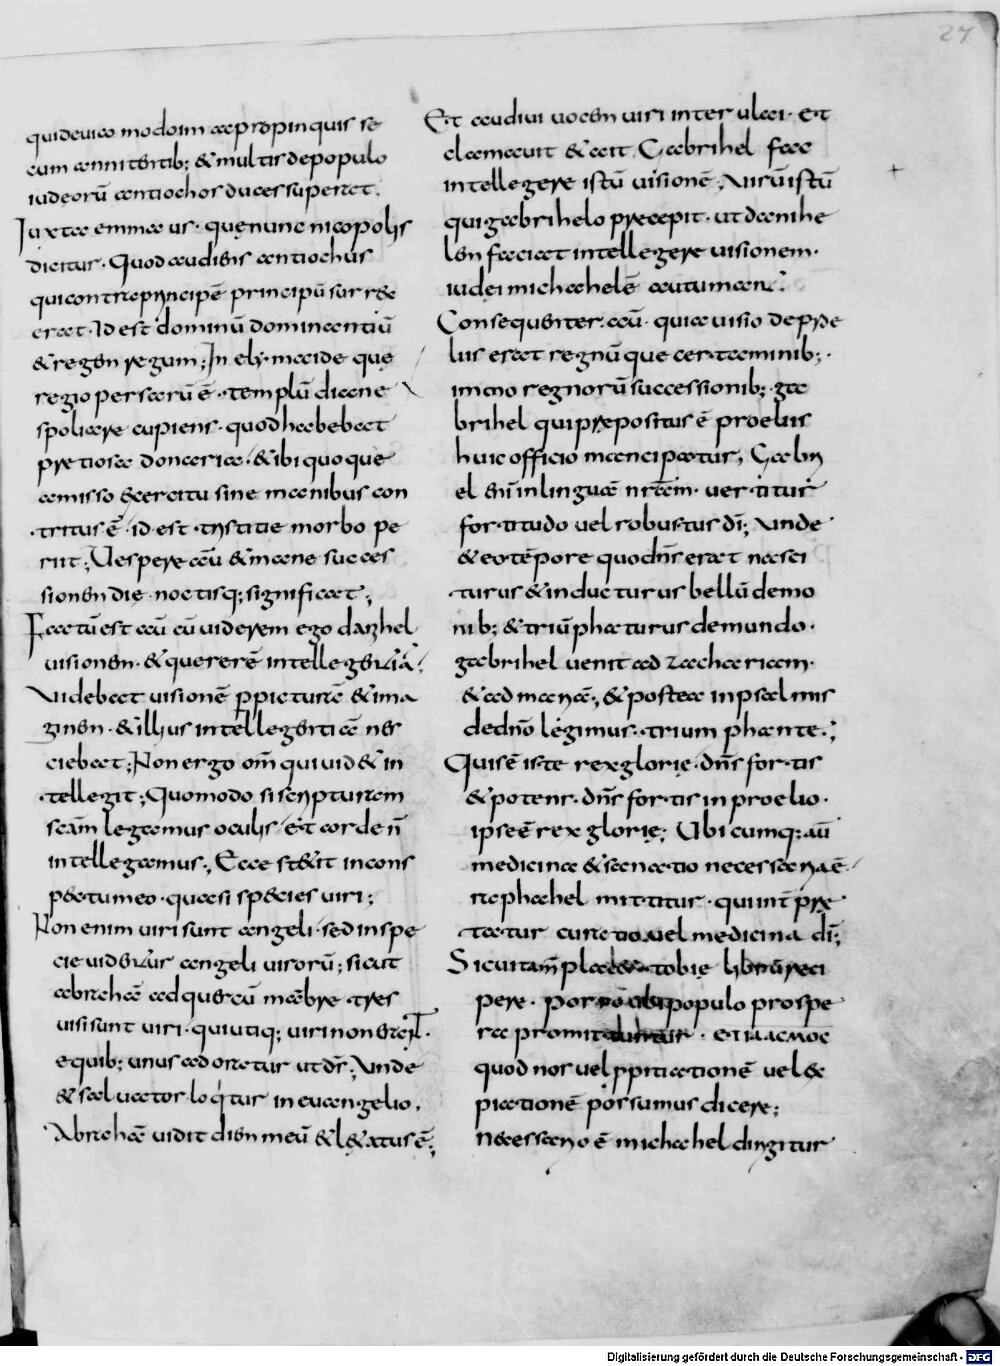 27
qui de vico modoim a propinquis se
cum annitentib; & multis de populo
iudeorū antiochos duces superet.
Iuxta emmaus· quę nunc nicopolis
dicitur· Quod audiens antiochus
qui contra principē principū surrex
erat· Id est dominū dominantiū
& regen regum; In elymaide quę
regio persarū ē· templū dianę
spoliare cupiens· quod habebat
pretiosa donaria· & ibi quoque
amisso exercitu sine manibus con
tritus ē· id est tristitie morbo pe
riit; Vespere aū & mane succes
sionen dię noctisq; significat;
Factū est aū cū viderem ego danihel
visionen· & quererē intellegentiā;
Videbat visionē p picturā & ima
ginen· & illius intellegentiā nes
ciebat; Non ergo om̄ qui vid& in
tellegit; Quomodo si scripturam
scām legamus oculis & corde n̄
intellegamus; Ecce st&it in cons
pectu meo· quasi species viri;
Non enim viri sunt angeli· sed in spe
cie videntur angeli virorū; sicut
abrahā ad quercū mābre tres
visi sunt viri· qui utiq; viri non erant·
e quib; unus adoratur ut d̄s; Unde
& salvator loqitur in evangelio·
Abrahā vidit dien meū & l&atus ē;
Et audivi vocen viri inter ulai· et
clamavit & ait Gabrihel fac
intellegere istū visionē; Virū istū
qui gabrihelo precepit· ut danihe
len faciat intellegere visionem·
iudei michahelē autumant;
Consequenter aū· quia visio de pre
liis erat regnū que certaminib;·
immo regnorū successionib;· ga
brihel qui prępositus ē proeliis
huic officio mancipatur; Gabri
el enī in linguā nr̄am· vertitur
fortitudo vel robustus dī; Unde
& eo tēpore quo dn̄s erat nasci
turus & inducturus bellū demo
nib; & triūphaturus de mundo·
gabrihel venit ad zachariam·
& ad mariā; & postea in psalmis
de dn̄o legimus· triumphante·;
Quis ē iste rex glorię· dn̄s fortis
& potens· dn̄s fortis in proelio·
ipse ē rex glorię; Ubicumq; aū
medicina & sanatio necessaria ē·
raphahel mittitur· qui int̄pre
tatur curatio vel medicina dī;
Sicui tam̄ plac& tobię librū reci
pere· porro ubi populo prospe
ra promittuntur· et ιλαϲμοϲ
quod nos vel ppitiationē vel ex
piationē possumus dicere;
necessario ē michahel dirigitur
Digitalisierung gefördert durch die Deutsche Forschungsgemeinschaft - DFG